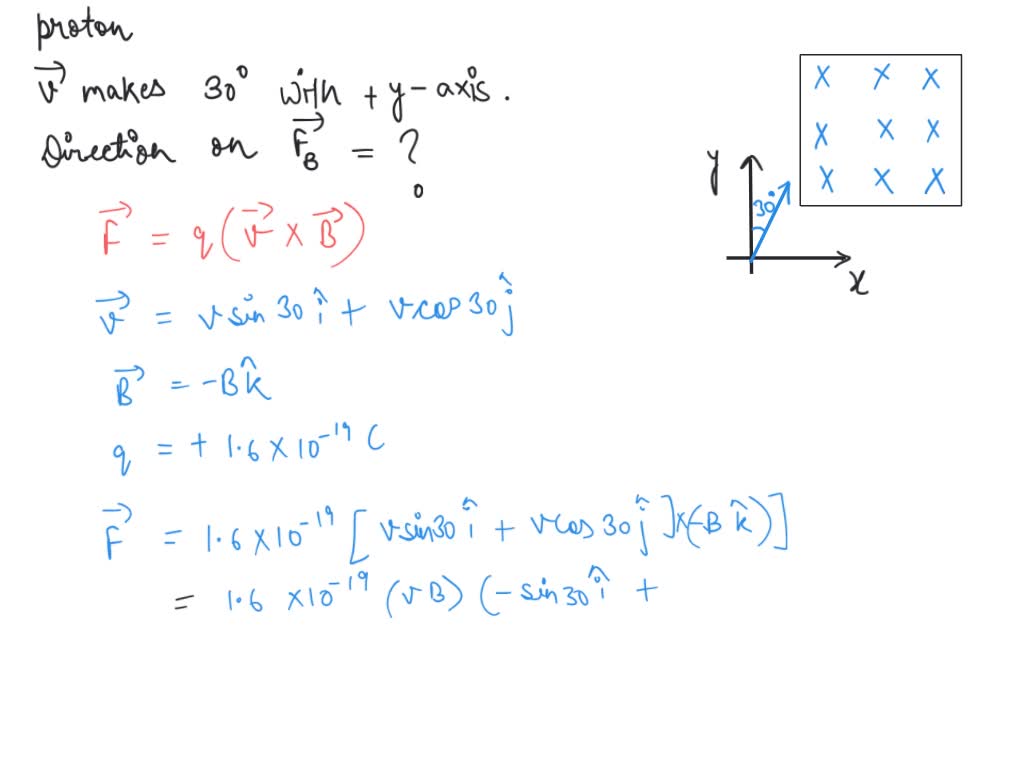 proton
v⃗ makes 30° with + y-axis.
Direction on F⃗_B = ?
F⃗ = q(v⃗ × B⃗)
v⃗ = v sin 30 î + v cos 30 ĵ
B⃗ = -B k̂
q = + 1.6 × 10⁻¹⁹ C
F⃗ = 1.6 × 10⁻¹⁹ [ v sin 30 î + v cos 30 ĵ ] × (-B k̂)]
= 1.6 × 10⁻¹⁹ (v B) (- sin 30 î +
X X X
X X X
X X X
y
30°
x